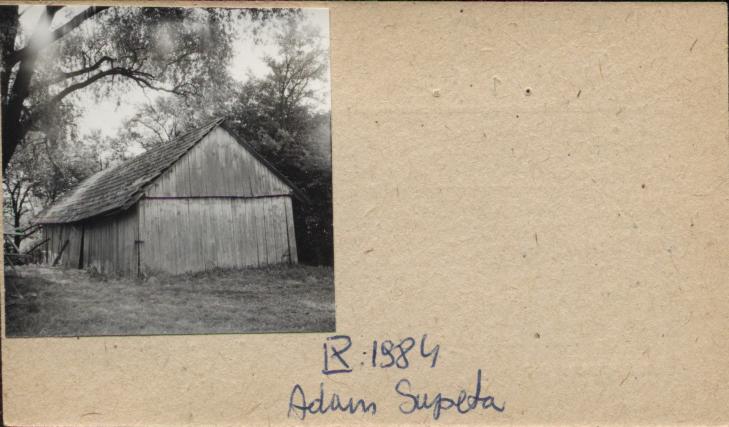 IX. 1984
Adam Supeta